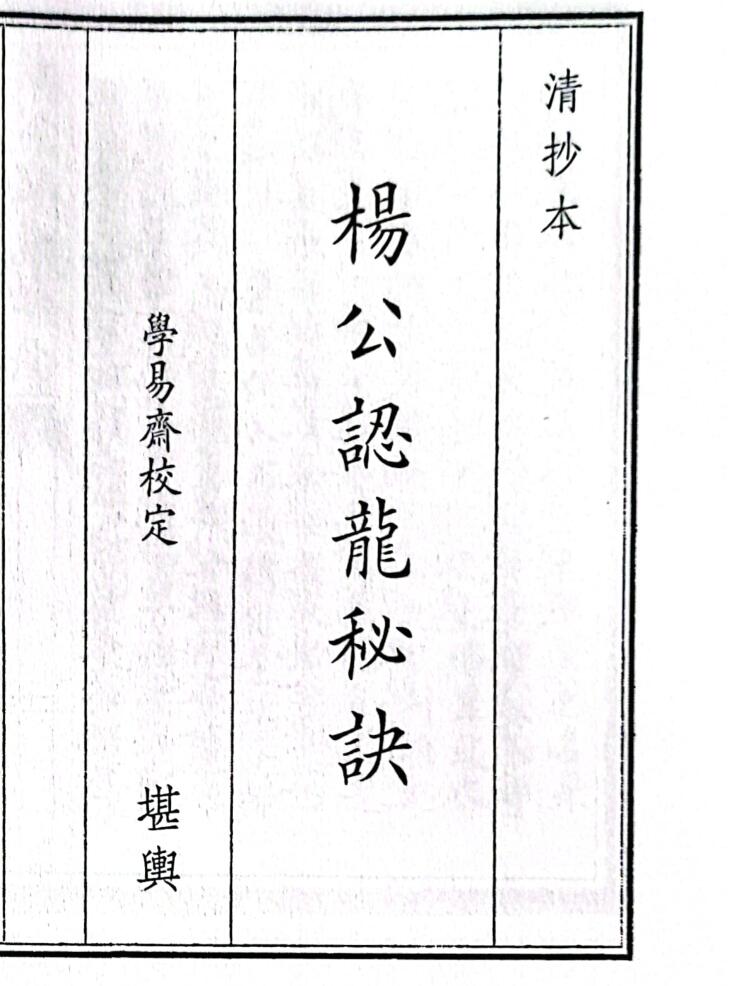 清抄本
楊公認龍秘訣
學易齋校定
堪輿